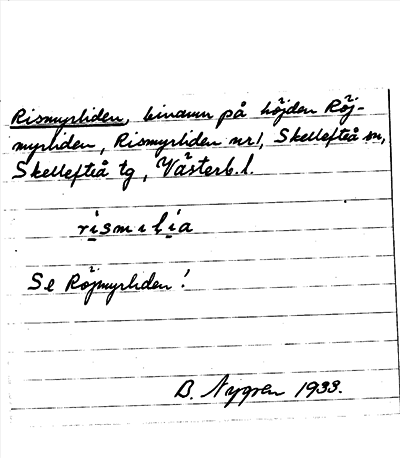 Rismyrliden, binamn på höjden Röj-
myrliden, Rismyrliden nr 1, Skellefteå sn,
Skellefteå tg, Västerb. l.
rismılia
Se Röjmyrliden!
B. Nygren 1933.